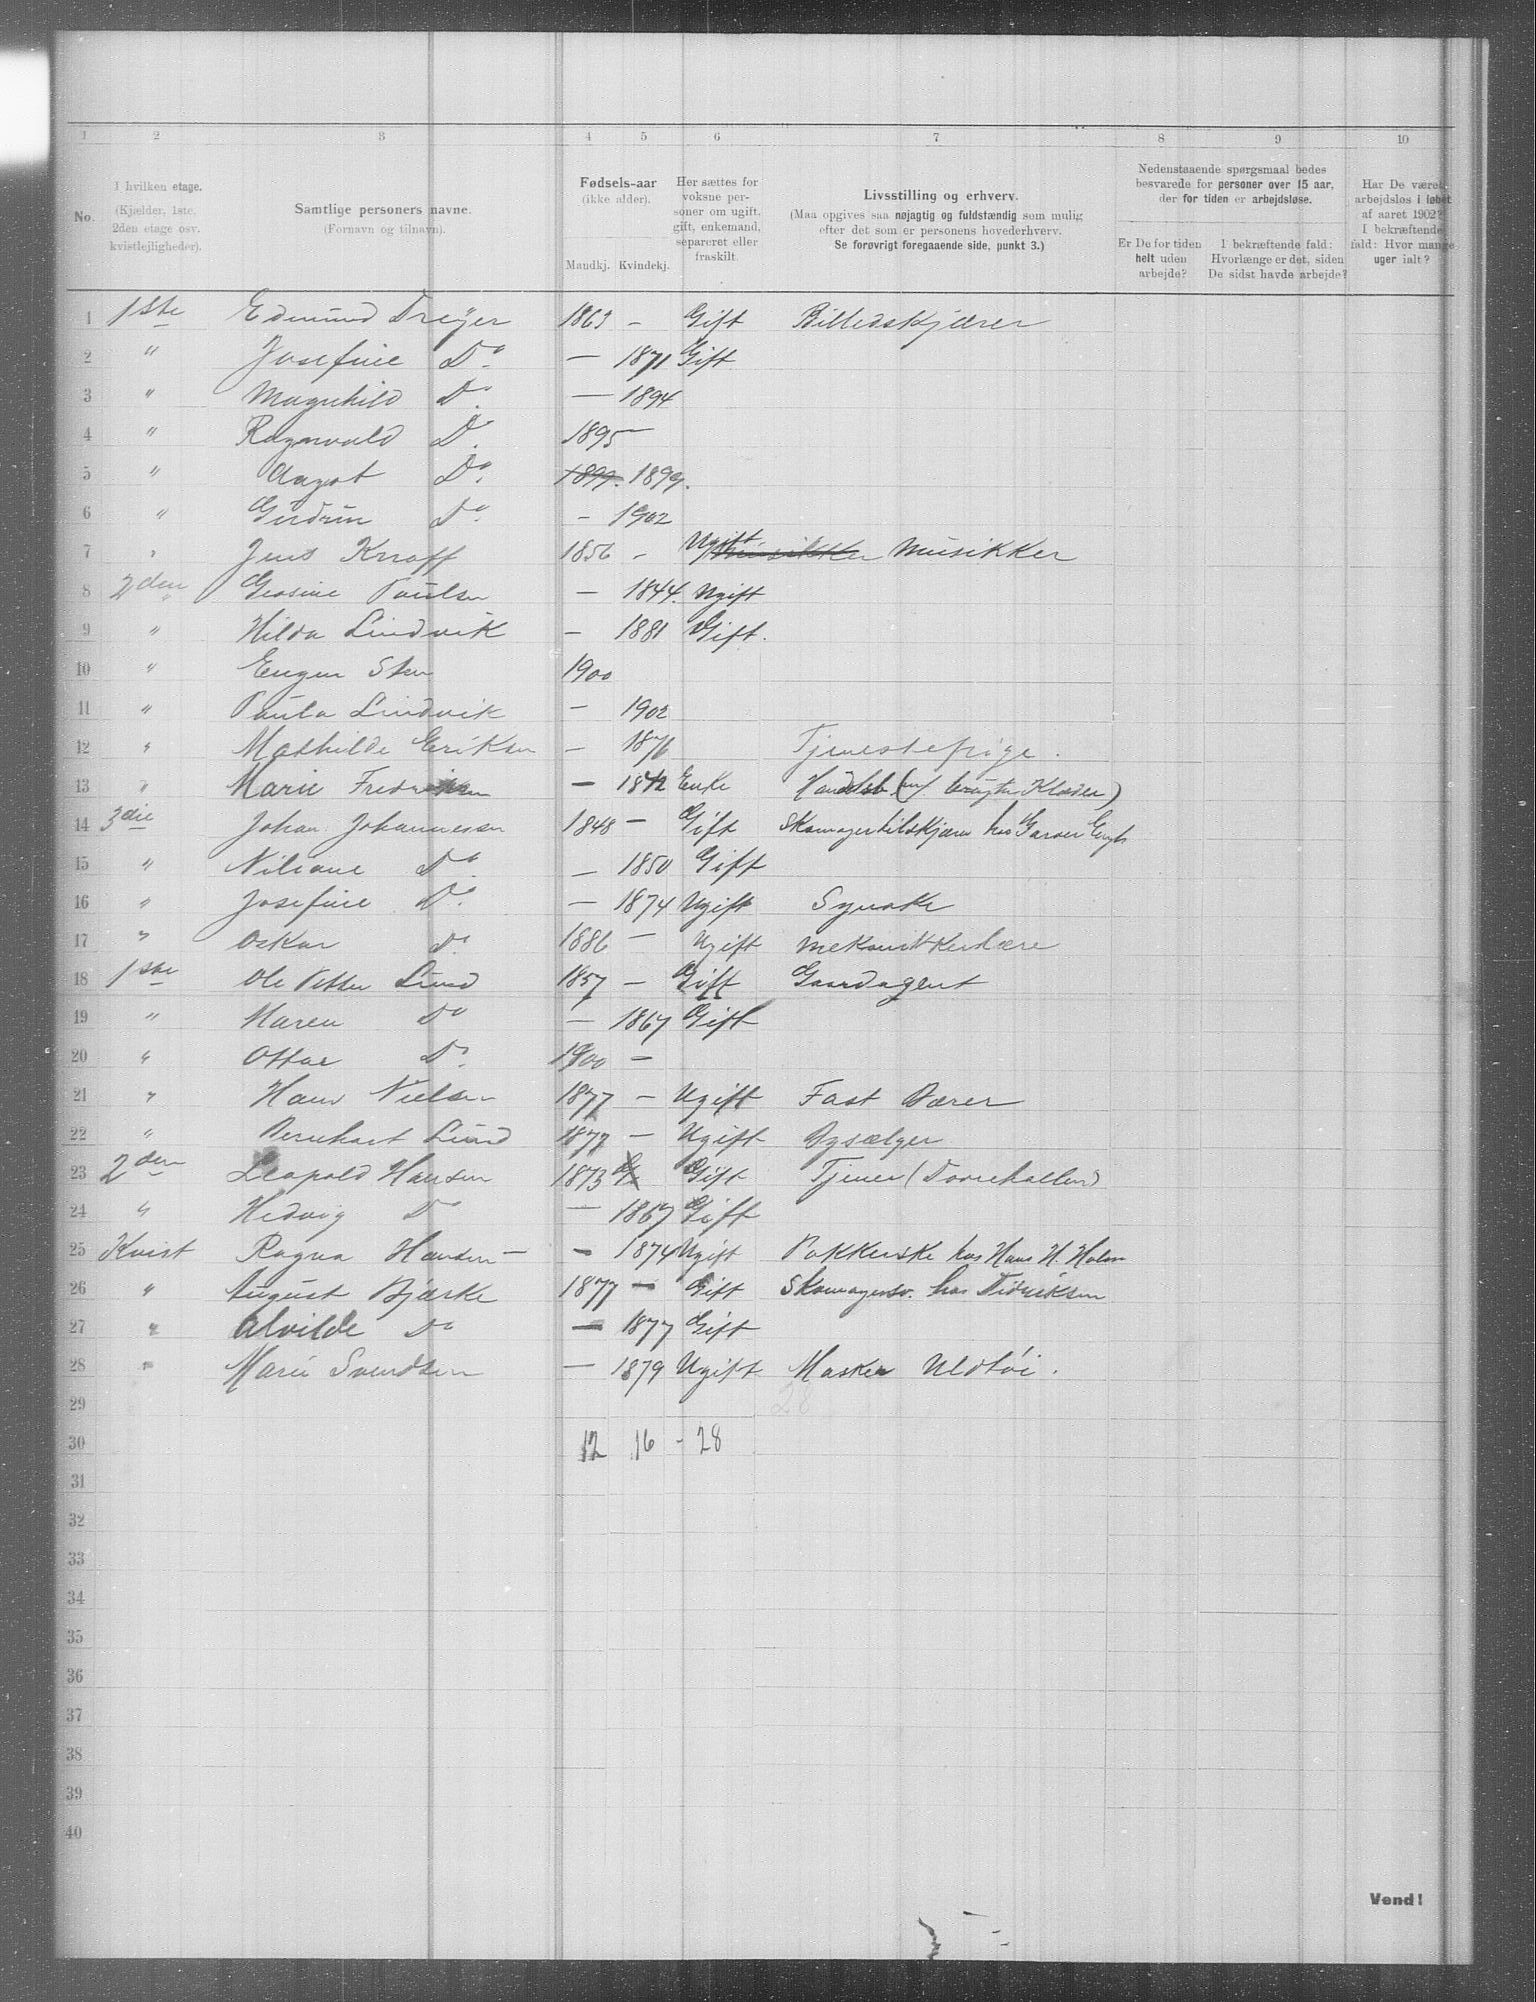 1 2 3 4 5 6 7 8 9 10
No.
I hvilken etage.
(Kjælder, 1ste,
2den etage osv.
kvistlejligheder).
Samtlige personers navne.
(Fornavn og tilnavn).
Fødsels-aar
(ikke alder).
Mandkj. Kvindekj.
Her sættes for
voksne per-
soner om ugift,
gift, enkemand,
separeret eller
fraskilt.
Livsstilling og erhverv.
(Maa opgives saa nøjagtig og fuldstændig som mulig
efter det som er personens hovederhverv.
Se forøvrigt foregaaende side, punkt 3.)
Nedenstaaende spørgsmaal bedes
besvarede for personer over 15 aar,
der for tiden er arbejdsløse.
Er De for tiden
helt uden
arbejde?
I bekræftende fald:
Hvorlænge er det, siden
De sidst havde arbejde?
Har De været
arbejdsløs i løbet
af aaret 1902?
I bekræftende
fald: Hvor mange
uger ialt?
1 1ste Edmund Dreyer 1863 – Gift Billedskjærer
2 " Josefine Do – 1871 Gift
3 " Magnhild Do – 1894
4 " Ragnvald Do 1895 –
5 " Aagot Do 1899. 1899.
6 " Gudrun Do – 1902
7 " Jens Knoff 1856 – Ugift Musikker Musikker
8 2den " Gosine Paulsen – 1844. Ugift
9 " Hilda Lindvik – 1881 Gift.
10 " Eugen Sten 1900
11 " Paula Lindvik – 1902
12 " Mathilde Eriksen – 1876 Tjenestepige.
13 " Marie Fredriksen – 1842 Enke Handelsb. (m. brugte Klæder)
14 3die Johan Johannesen 1848 – Gift Skomagertilskjærer hos Garver
15 " Niliane Do – 1850 Gift
16 " Josefine Do – 1874 Ugift Syerske
17 " Oskar Do 1886 – Ugift
18 1ste Ole Petter Lund 1857 – Gift Gaardagent
19 " Maren Do – 1867 Gift
20 " Ottar Do 1900 –
21 " Hans Nielsen 1877 – Ugift Fast Bærer
22 " Bernhart Lund 1877 – Ugift Bysælger
23 2den Leopold Hansen 1873 G Gift Tjener
24 " Hedvig Do – 1867 Gift
25 Kvist Ragna Hansen – – 1874 Ugift Pakkerske hos Hans H. Holm
26 " August Bjørke 1877 – Gift Skomagersv. hos Didriksen
27 " Alvilde Do – 1877 Gift
28 " Marie Svendsen – 1879 Ugift Uldtøi.
28
29
30 12 16 - 28
31
32
33
34
35
36
37
38
39
40
Vend!